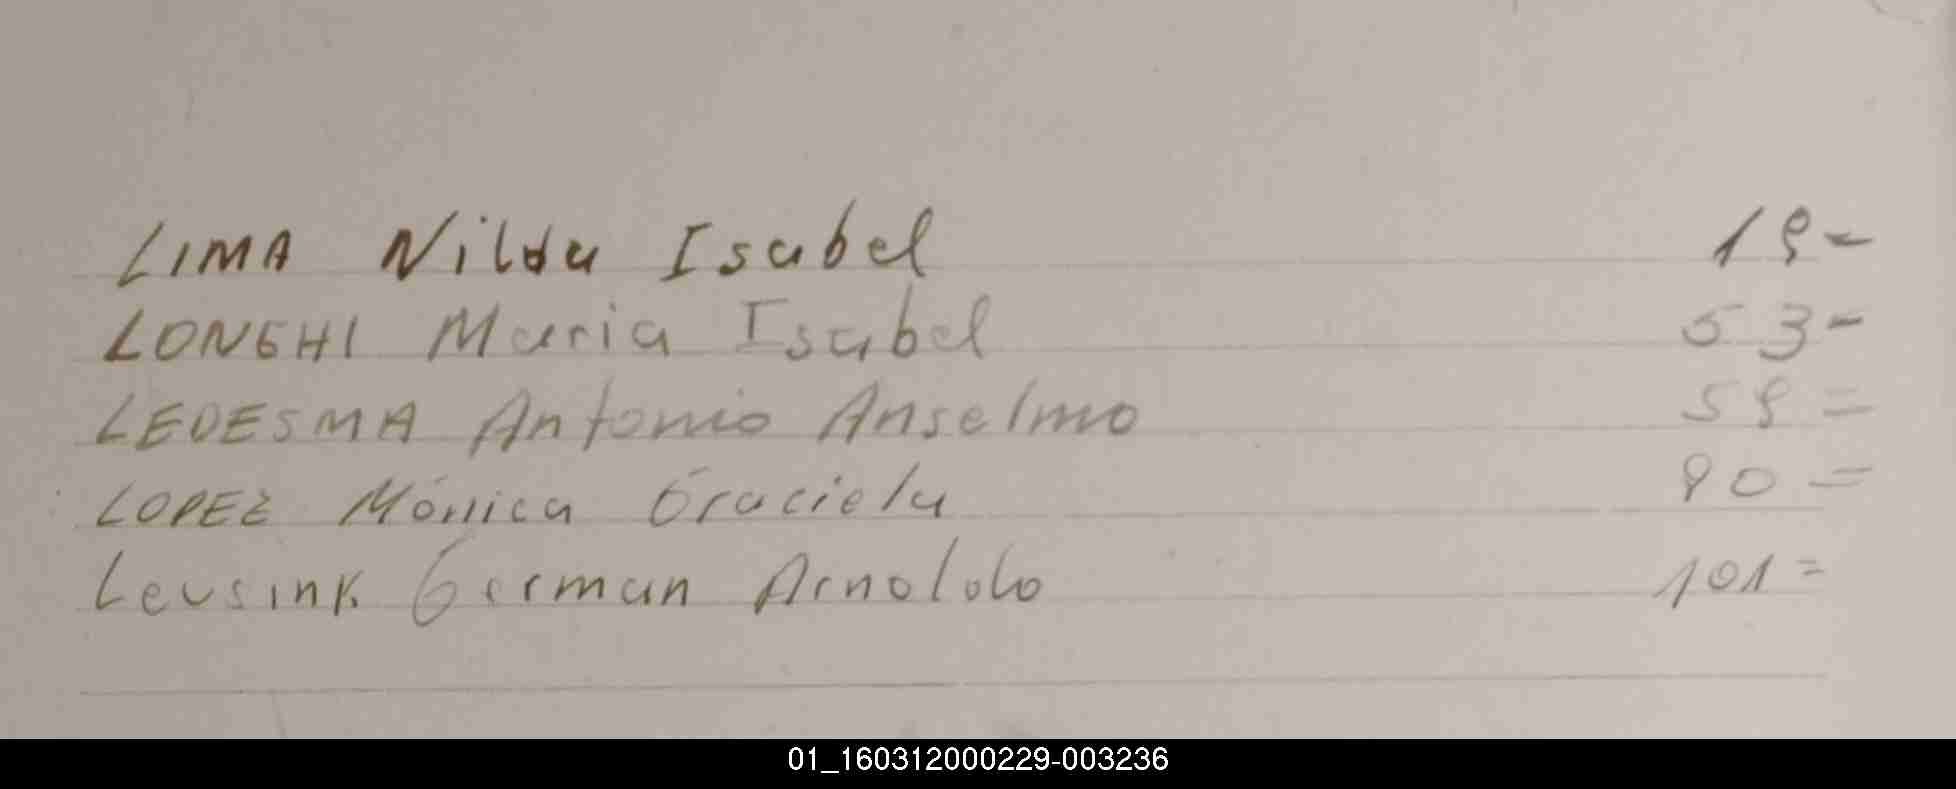 LIMA Nilda Isabel 19=
LONGHI Maria Isabel 53=
LEDESMA Antonio Anselmo 59=
LOPEZ Mónica Graciela 90=
Leusink German Arnoldo 101=
01_160312000229-003236